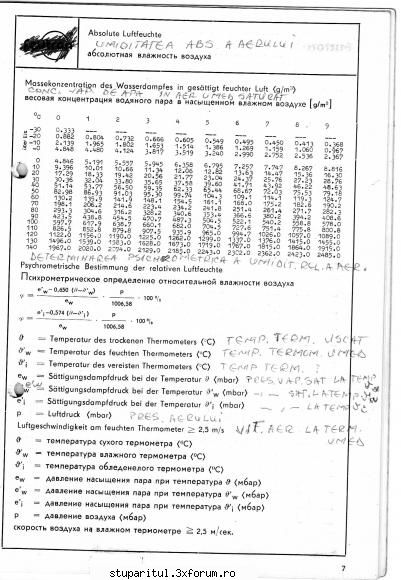 Absolute Luftfeuchte
UMIDITATEA ABS A AERULUI
абсолютная влажность воздуха
Massekonzentration des Wasserdampfes in gesättigt feuchter Luft (g/m³)
CONC. VAP. DE APA IN AER UMED SATURAT
весовая концентрация водяного пара в насыщенном влажном воздухе [g/m³]
0 1 2 3 4 5 6 7 8 9
-30 0.333 --- --- --- --- --- --- --- --- ---
-20 0.882 0.804 0.732 0.666 0.605 0.549 0.495 0.450 0.413 0.368
-10 2.139 1.965 1.802 1.653 1.514 1.386 1.269 1.159 1.060 0.967
-0 4.848 4.480 4.124 3.817 3.519 3.240 2.990 2.752 2.536 2.367
0 4.846 5.191 5.557 5.945 6.358 6.795 7.257 7.747 8.267 8.816
10 9.396 10.01 10.66 11.34 12.06 12.82 13.63 14.47 15.36 16.30
20 17.29 18.33 19.42 20.56 21.77 23.04 24.37 25.76 27.23 28.75
30 30.36 32.04 33.80 35.65 37.58 39.60 41.71 43.92 46.22 48.63
40 51.14 53.77 56.50 59.35 62.33 65.44 68.67 72.03 75.53 79.18
50 82.98 86.93 91.03 95.30 99.74 104.3 109.1 114.1 119.3 124.7
60 130.2 135.9 141.9 148.1 154.5 161.1 168.0 175.2 182.6 190.2
70 198.1 206.2 214.6 223.4 232.2 241.8 251.4 261.4 271.7 282.3
80 293.3 304.6 316.2 328.2 340.6 353.4 366.6 380.2 394.2 408.6
90 423.5 438.8 454.5 470.7 487.3 504.5 522.1 540.2 558.8 578.0
100 597.9 618.0 639.7 660.1 682.0 704.5 727.6 751.4 775.8 800.8
110 826.5 852.8 879.8 907.5 935.9 965.0 994.7 1026.0 1057.0 1089.0
120 1122.0 1156.0 1190.0 1225.0 1262.0 1299.0 1337.0 1376.0 1415.0 1455.0
130 1496.0 1539.0 1583.0 1628.0 1673.0 1719.0 1767.0 1815.0 1864.0 1915.0
140 1967.0 2020.0 2074.0 2129.0 2185.0 2243.0 2302.0 2362.0 2423.0 2485.0
DETERMINAREA PSICHROMETRICA A UMIDIT. REL. A AER.
Psychrometrische Bestimmung der relativen Luftfeuchte
Психрометрическое определение относительной влажности воздуха
φ = e'w−0,650 (ϑ−ϑ'w) p / 1006,58 · 100 %
ew
φ = e'i−0,574 (ϑ−ϑ'i) p / 1006,58 · 100 %
ew
ϑ = Temperatur des trockenen Thermometers (°C) TEMP. TERM. USCAT
ϑ'w = Temperatur des feuchten Thermometers (°C) TEMP. TERMOM. UMED
ϑ'i = Temperatur des vereisten Thermometers (°C) TEMP TERM. ?
ew = Sättigungsdampfdruck bei der Temperatur ϑ (mbar) PRES. VAP. SAT LA TEMP ϑ
e'w = Sättigungsdampfdruck bei der Temperatur ϑ'w (mbar) -"- SAT. LA TEMP. ϑ'w
e'i = Sättigungsdampfdruck bei der Temperatur ϑ'i (mbar) -"- LA TEMP ϑ'i
p = Luftdruck (mbar) PRES. AERULUI
Luftgeschwindigkeit am feuchten Thermometer ≧ 2,5 m/s VIT. AER LA TERM. UMED
ϑ = температура сухого термометра (°C)
ϑ'w = температура влажного термометра (°C)
ϑ'i = температура обледенелого термометра (°C)
ew = давление насыщения пара при температура ϑ (мбар)
e'w = давление насыщения пара при температура ϑ'w (мбар)
e'i = давление насыщения пара при температура ϑ'i (мбар)
p = давление воздуха (мбар)
скорость воздуха на влажном термометре ≧ 2,5 м/сек.
7
stuparitul.3xforum.ro